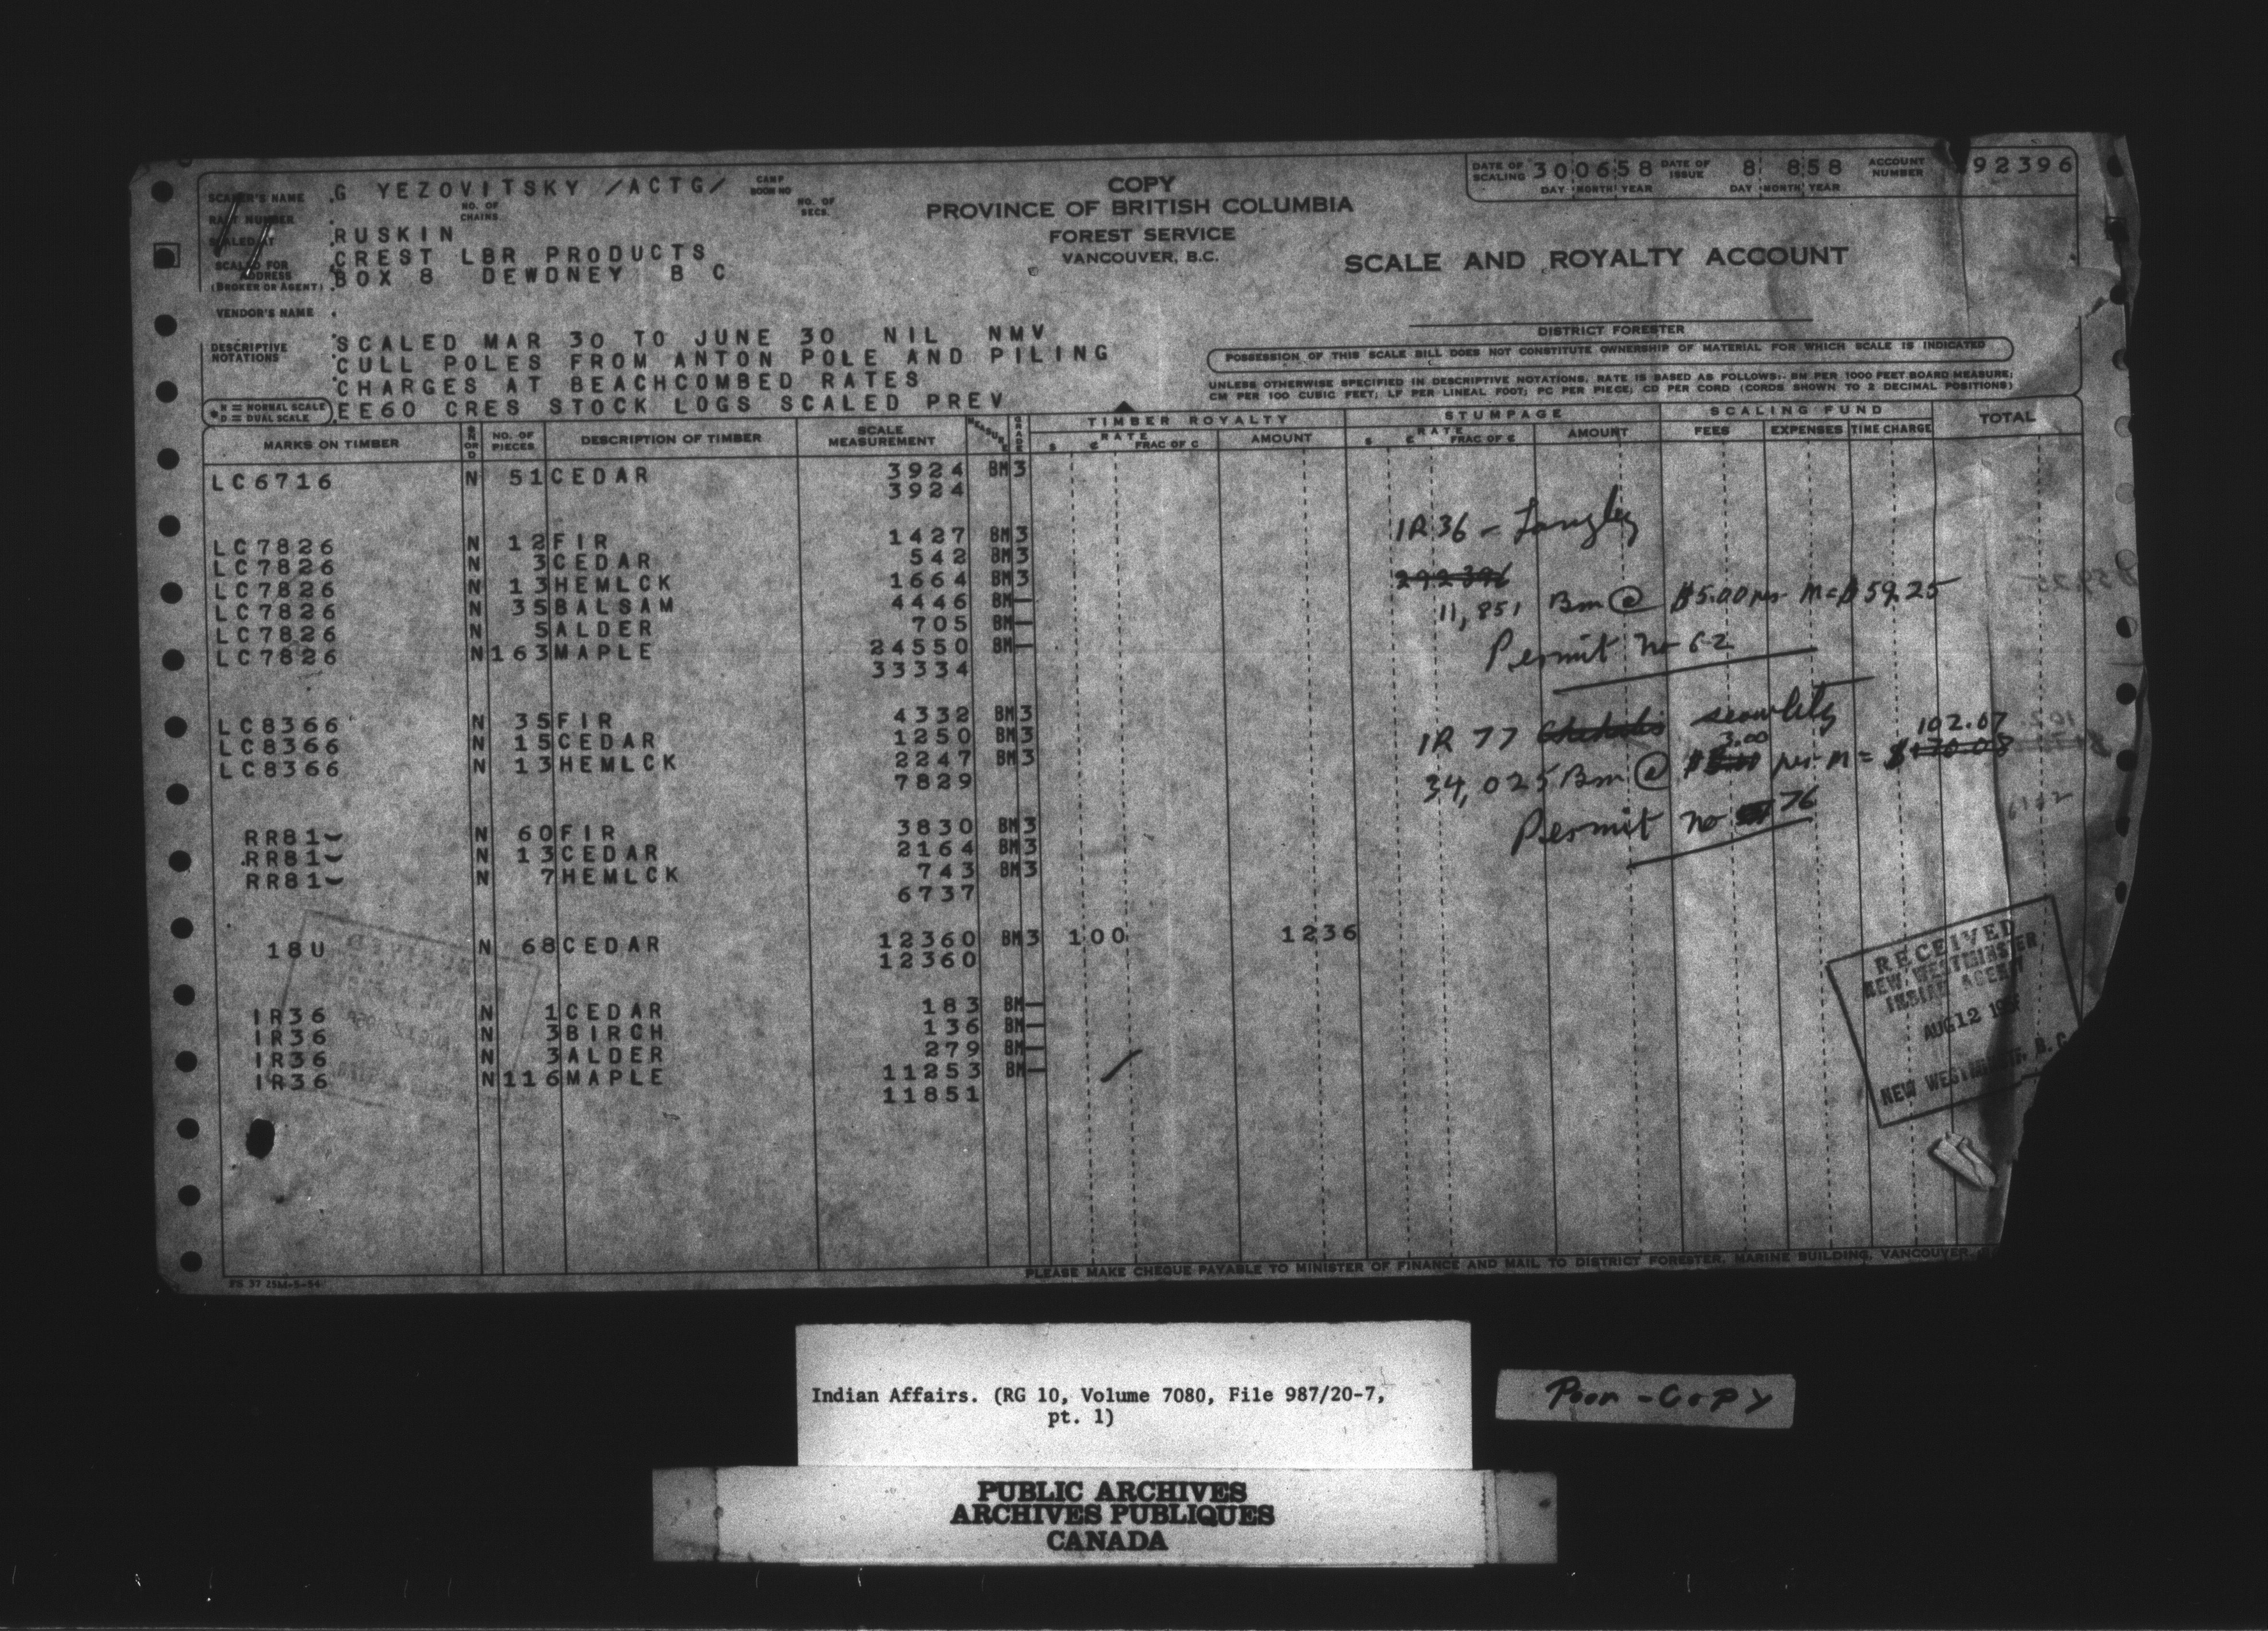 DATE OF SCALING 30 06 58 DATE OF ISSUE 8 8 58 ACCOUNT NUMBER 92396
DAY MONTH YEAR DAY MONTH YEAR
SCALER'S NAME G YEZOVITSKY /ACTG/ CAMP BOOM NO
RAFT NUMBER NO. OF CHAINS NO. OF SECS.
SCALED AT RUSKIN
SCALED FOR CREST LBR PRODUCTS
ADDRESS BOX 8 DEWDNEY B C
(BROKER OR AGENT)
VENDOR'S NAME
COPY
PROVINCE OF BRITISH COLUMBIA
FOREST SERVICE
VANCOUVER, B.C.
SCALE AND ROYALTY ACCOUNT
DISTRICT FORESTER
DESCRIPTIVE NOTATIONS
SCALED MAR 30 TO JUNE 30 NIL NMV
CULL POLES FROM ANTON POLE AND PILING
CHARGES AT BEACHCOMBED RATES
EE60 CRES STOCK LOGS SCALED PREV
POSSESSION OF THIS SCALE BILL DOES NOT CONSTITUTE OWNERSHIP OF MATERIAL FOR WHICH SCALE IS INDICATED
UNLESS OTHERWISE SPECIFIED IN DESCRIPTIVE NOTATIONS, RATE IS BASED AS FOLLOWS:- BM PER 1000 FEET BOARD MEASURE;
CM PER 100 CUBIC FEET; LF PER LINEAL FOOT; PC PER PIECE; CD PER CORD (CORDS SHOWN TO 2 DECIMAL POSITIONS)
N = NORMAL SCALE
D = DUAL SCALE
TIMBER ROYALTY STUMPAGE SCALING FUND TOTAL
MARKS ON TIMBER N OR D NO. OF PIECES DESCRIPTION OF TIMBER SCALE MEASUREMENT MEASURE GRADE $ RATE ¢ FRAC OF ¢ AMOUNT $ RATE ¢ FRAC OF ¢ AMOUNT FEES EXPENSES TIME CHARGE
LC6716 N 51 CEDAR 3924 BM 3
3924
LC7826 N 12 FIR 1427 BM 3
LC7826 N 3 CEDAR 542 BM 3
LC7826 N 13 HEMLCK 1664 BM 3
LC7826 N 35 BALSAM 4446 BM—
LC7826 N 5 ALDER 705 BM—
LC7826 N 163 MAPLE 24550 BM—
33334
LC8366 N 35 FIR 4332 BM 3
LC8366 N 15 CEDAR 1250 BM 3
LC8366 N 13 HEMLCK 2247 BM 3
7829
RR81 N 60 FIR 3830 BM 3
RR81 N 13 CEDAR 2164 BM 3
RR81 N 7 HEMLCK 743 BM 3
6737
18U N 68 CEDAR 12360 BM 3 100 1236
12360
IR36 N 1 CEDAR 183 BM—
IR36 N 3 BIRCH 136 BM—
IR36 N 3 ALDER 279 BM—
IR36 N 116 MAPLE 11253 BM—
11851
IR 36 – Langley
292396
11,851 Bm @ $5.00 per M = $59.25
Permit no 62
IR 77 Chehalis scowlitz
34,025 Bm @ 3.00 per M = $170.08 102.07
Permit no 76
RECEIVED
NEW WESTMINSTER
INDIAN AGENCY
AUG 12
NEW WESTMINSTER, B.C.
FS 37 25M-5-54
PLEASE MAKE CHEQUE PAYABLE TO MINISTER OF FINANCE AND MAIL TO DISTRICT FORESTER, MARINE BUILDING, VANCOUVER
Indian Affairs. (RG 10, Volume 7080, File 987/20-7,
pt. 1)
Poor-Copy
PUBLIC ARCHIVES
ARCHIVES PUBLIQUES
CANADA